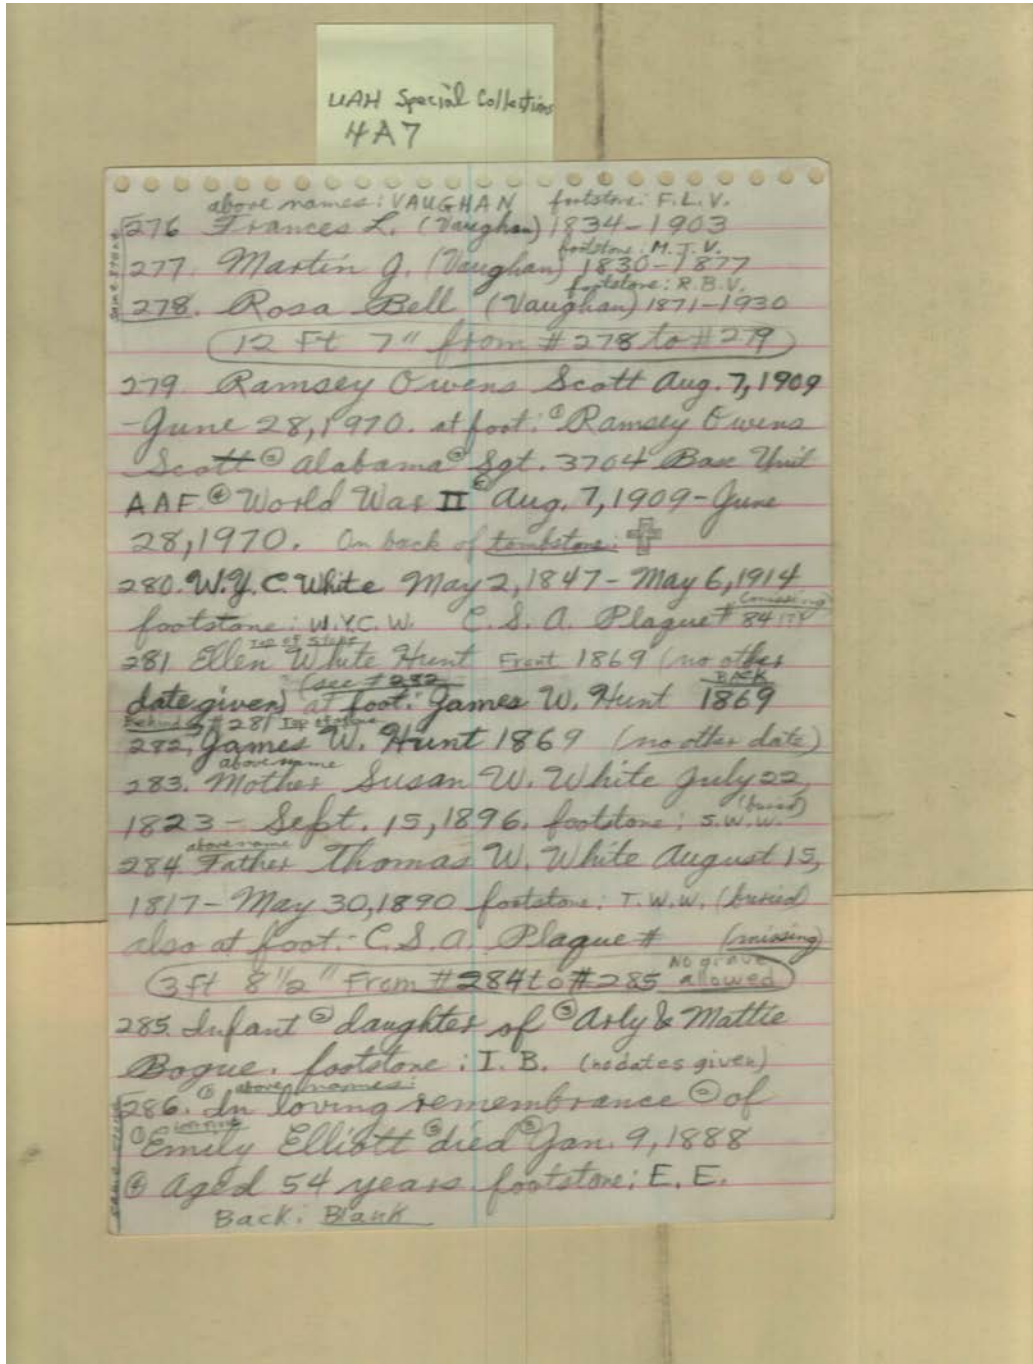 UAH Special Collections
4A7
above names: VAUGHAN footstone: F.L.V.
276 Frances L. (Vaughan) 1834-1903
footstone: M.J.V.
277. Martin J. (Vaughan) 1830-1877
footstone: R.B.V.
278. Rosa Bell (Vaughan) 1871-1930
same stone
12 Ft 7" from #278 to #279
279. Ramsey Owens Scott Aug. 7, 1909
-June 28, 1970. at foot: ① Ramsey Owens
Scott ② Alabama ③ Sgt. 3704 Base Unit
AAF ④ World War II ⑤ Aug. 7, 1909-June
28, 1970. On back of tombstone:
280. W.Y.C. White May 2, 1847- May 6, 1914
footstone: W.Y.C.W. C.S.A. Plaque # 84
Top of stone
281 Ellen White Hunt Front 1869 (no other
(see #282 BACK
date given) at foot: James W. Hunt 1869
Behind #281 Top of stone
282. James W. Hunt 1869 (no other date)
above name
283. Mother Susan W. White July 22,
1823- Sept. 15, 1896. footstone: S.W.W. (buried)
above name
284 Father Thomas W. White August 15,
1817- May 30, 1890 footstone: T.W.W. (buried)
also at foot:- C.S.A. Plaque # (missing)
3 ft 8 1/2" From #284 to #285 No grave allowed
285. Infant ② daughter of ③ Arly & Mattie
Bogue. footstone: I.B. (no dates given)
above names:
286. ① In loving remembrance ② of
① Emily Elliott ② died ③ Jan. 9, 1888
④ Aged 54 years footstone: E.E.
Back: Blank